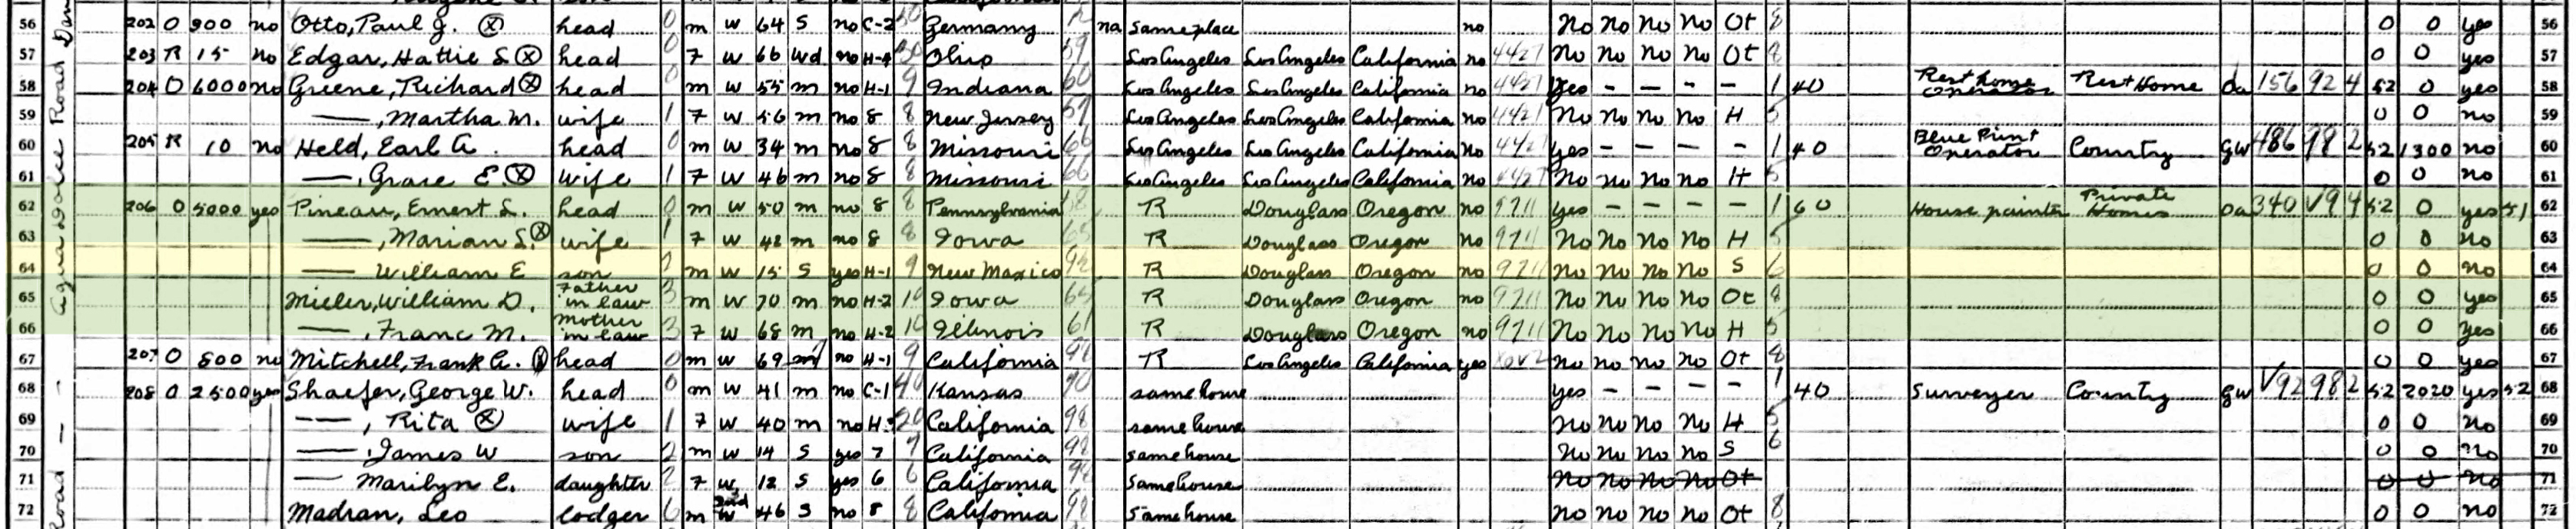 56 202 O 900 no Otto, Paul J. Ⓧ head 0 m w 64 S no C-2 Germany na same place no No No No No Ot 8 0 0 yes 56
57 203 R 15 no Edgar, Hattie S Ⓧ head 0 7 w 66 Wd no H-4 Ohio 59 Los Angeles Los Angeles California no 4427 No No No No Ot 8 0 0 yes 57
58 204 O 6000 no Greene, Richard Ⓧ head 0 m w 55 m no H-1 9 Indiana 60 Los Angeles Los Angeles California no 4427 yes - - - - 1 40 Rest home Operator Rest Home Oa 156 92 4 52 0 yes 58
59 ——, Martha M. wife 1 7 w 56 m no 8 8 New Jersey 57 Los Angeles Los Angeles California no 4427 No No No No H 5 0 0 no 59
60 205 R 10 no Held, Earl A. head 0 m w 34 m no 8 8 Missouri 66 Los Angeles Los Angeles California no 4427 yes - - - - 1 40 Blue Print Operator Country GW 486 98 2 52 1300 no 60
61 ——, Grace E. Ⓧ wife 1 7 w 46 m no 8 8 Missouri 66 Los Angeles Los Angeles California no 4427 No No No No H 5 0 0 no 61
62 206 O 5000 yes Pineau, Ernest L. head 0 m w 50 m no 8 8 Pennsylvania 58 R Douglass Oregon no 9711 yes - - - - 1 60 House painter Private Homes Oa 340 V9 4 52 0 yes 51 62
63 ——, Marian S. Ⓧ wife 1 7 w 42 m no 8 8 Iowa 65 R Douglass Oregon no 9711 No No No No H 5 0 0 no 63
64 —— William E son 2 m w 15 S yes H-1 9 New Maxico 92 R Douglass Oregon no 9711 No No No No S 6 0 0 no 64
65 Miller, William D. Father in law 3 m w 70 m no H-2 10 Iowa 65 R Douglass Oregon no 9711 No No No No Ot 8 0 0 yes 65
66 ——, Franc M. mother in law 3 7 w 68 m no H-2 10 Illinois 61 R Douglass Oregon no 9711 No No No No H 5 0 0 yes 66
67 207 O 800 no Mitchell, Frank A. Ⓧ head 0 m w 69 m no H-1 9 California 98 R Los Angeles California yes X0V2 No No No No Ot 8 0 0 yes 67
68 208 O 2500 yes Shaefer, George W. head 0 m w 41 m no C-1 40 Kansas 70 same house yes - - - - 1 40 Surveyer Country GW V92 98 2 52 2020 yes 52 68
69 ——, Rita Ⓧ wife 1 7 w 40 m no California 98 same house No No No No H 5 0 0 no 69
70 ——, James W son 2 m w 14 S yes 7 7 California 98 same house No No No No S 6 0 0 no 70
71 —— Marilyn E. daughter 2 7 w 12 S yes 6 6 California 98 same house No No No No Ot 0 0 No 71
72 Madran, Leo lodger 6 m w 46 S no 8 8 California 98 same house No No No No Ot 8 0 0 no 72
Road